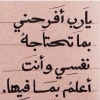 يارب أفرحني
بما تحتاجة
نفسي وأنت
أعلم بما فيها.